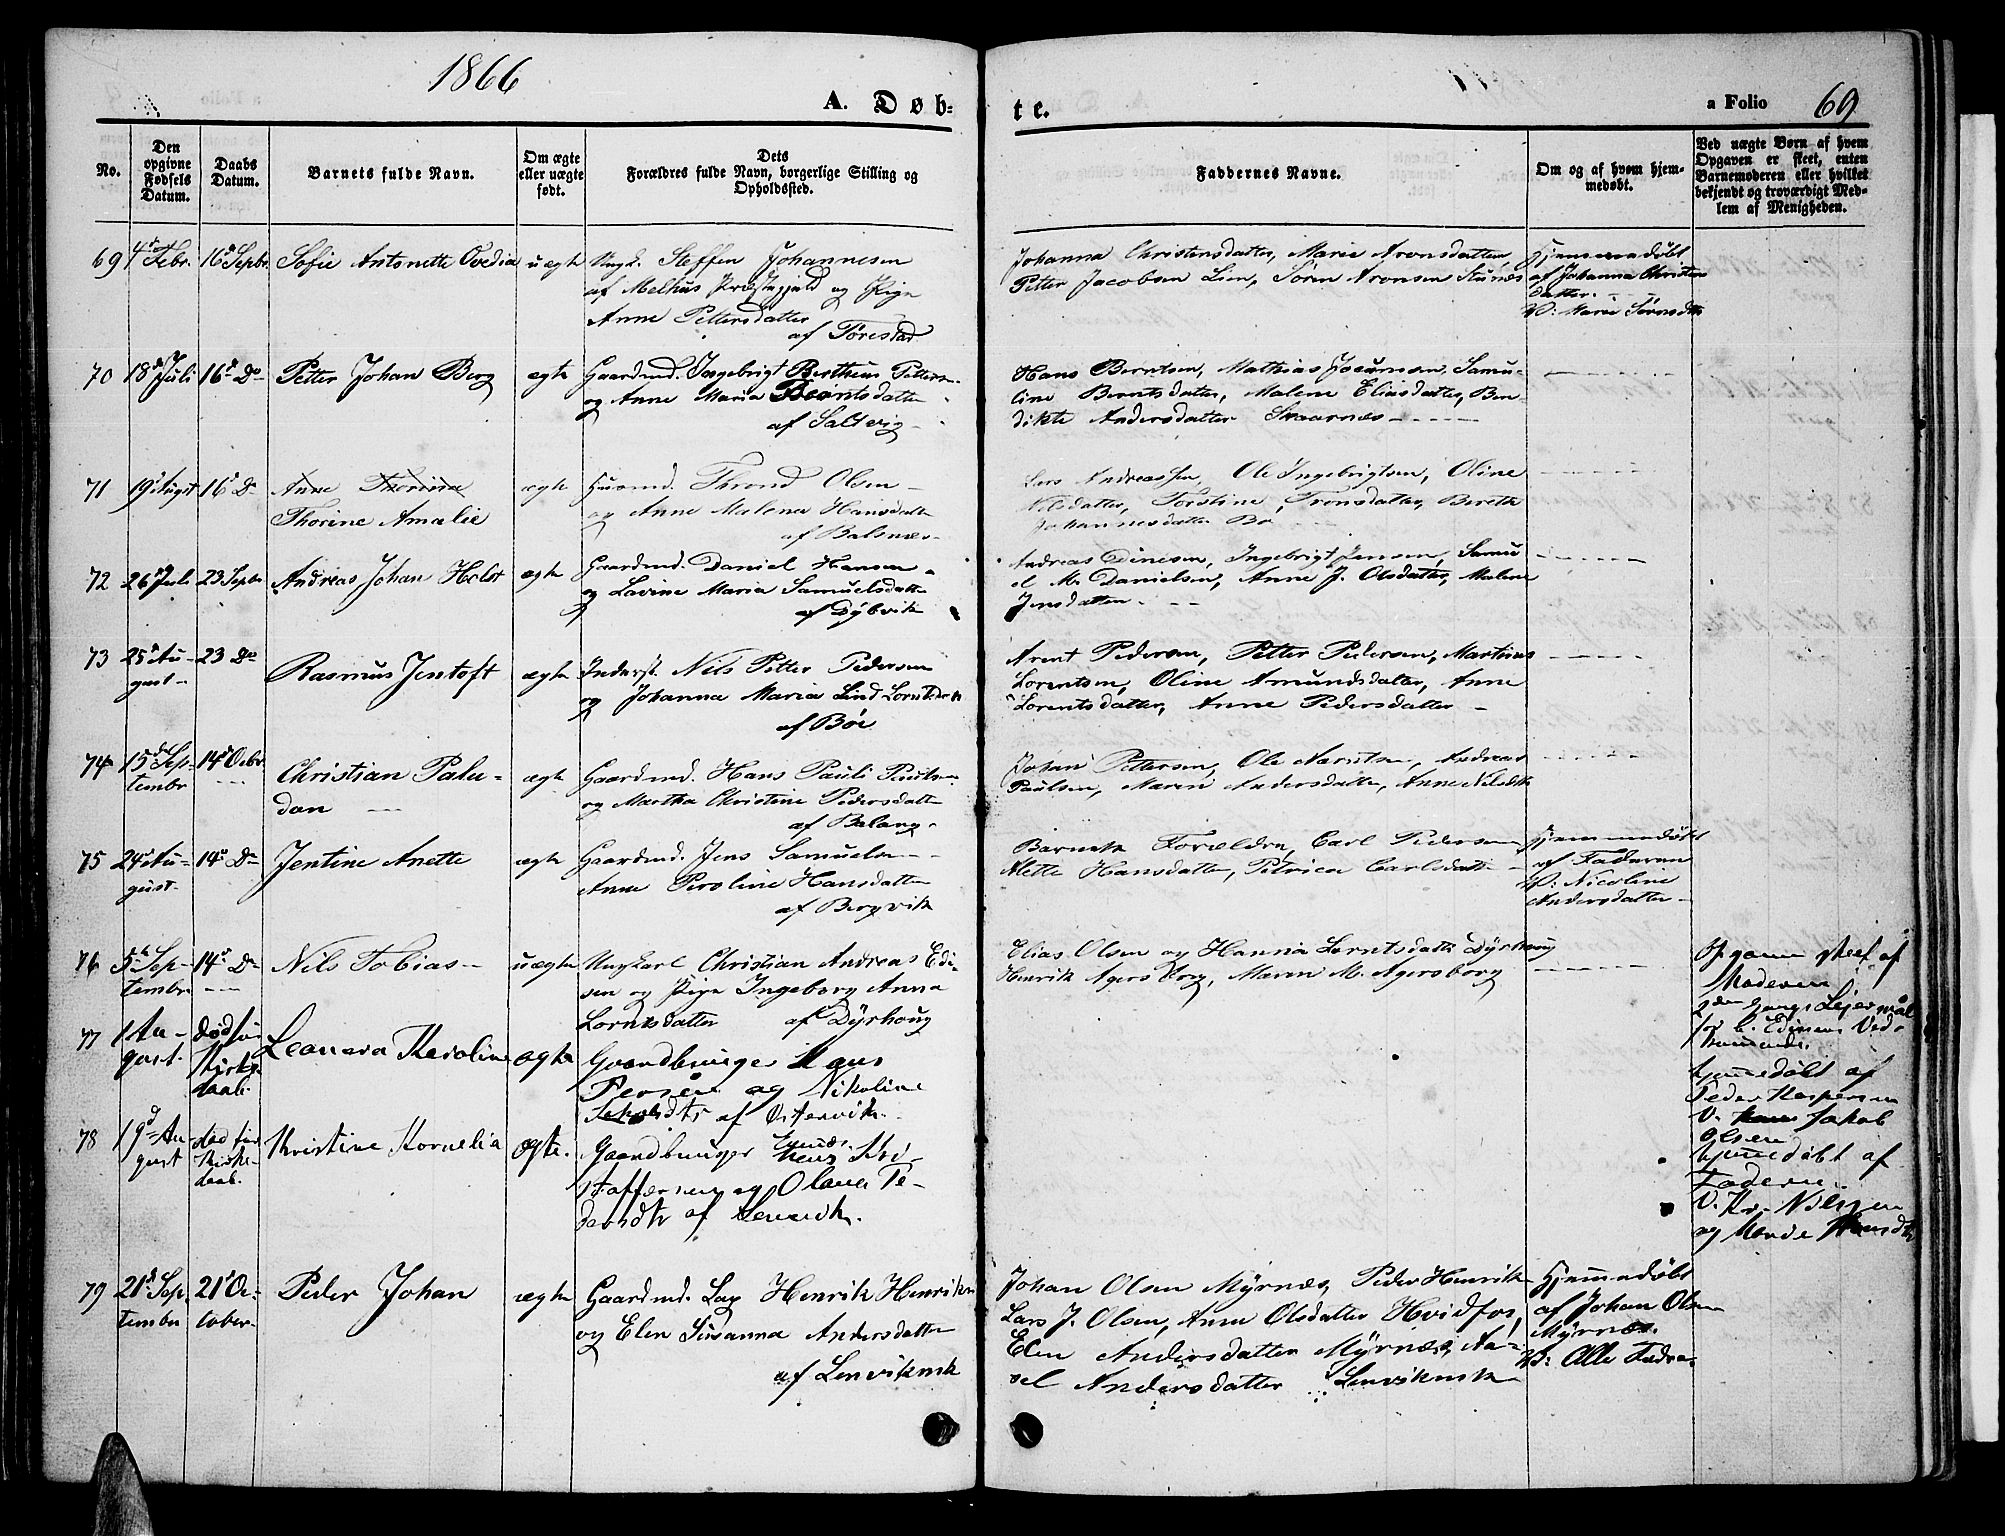 1866
A. Døb=
te.
a Folio 69
No.
Den opgivne Fødsels Datum.
Daabs Datum.
Barnets fulde Navn.
Om ægte eller uægte født.
Dets Forældres fulde Navn, borgerlige Stilling og Opholdssted.
Faddernes Navne.
Om og af hvem hjemmedøbt.
Ved uægte Børn af hvem Opgaven er skeet, enten Barnemoderen eller hvilket bekjendt og troværdigt Medlem af Menigheden.
69 4d Febr. 16d Sepbr. Sofie Antonette Ovedia uægte Ungk. Steffen Johannesen
af Melhus Præstegjeld og Pige
Anne Pettersdatter
af Torestad
Johanna Christensdatter, Marie Aronsdatter,
Petter Jacobsen Lien, Søren Aronsen
Hjemmedøbt
af Johanna Christens
datter.
70 18d Juli 16d Do Petter Johan Berg ægte Gaardmd. Ingebrigt Bertheus Petters.
og Anne Maria Berntsdatter
af Saltvig
Hans Berntsen, Mathias Samu-
line Berntsdatter, Malene Eliasdatter, Ben-
dikte Andersdatter Skaarnæs
71 19d Augst 16d Do Anne Thorine
Thorine Amalie ægte Huusmd. Thrond Olsen
og Anne Malena Hansdatter
af Balsnæs
Lars Andreassen, Ole Ingebrigtsen, Oline
Nilsdatter, Torstine Tronsdatter, Bereth
Johannesdatter
72 26d Juli 23 Sepbr Andreas Johan Holst ægte Gaardmd. Daniel Hansen
og Lavine Maria Samuelsdatter
af Dybvik
Andreas Dinesen, Ingebrigt Jensen, Samu
el M. Danielsen, Anne J. Olsdatter, Malene
Jensdatter.
73 25d Au-
gust 23 Do Rasmus Jentoft ægte Inderst. Nils Petter Pedersen
og Johanna Maria Lind Lorntsdtr
af Bøe
Arent Pedersen, Petter Pedersen, Martinus
Lorentsen, Oline Amundsdatter, Anne
Lorentsdatter, Anne Pedersdatter
74 15de Sep-
tembr 14d Ocbr Christian Palu-
dan ægte Gaardmd. Hans Pauli Paulsen
og Martha Christine Pedersdatter
af Balang
Johan Pettersen, Ole Andreas
Paulsen, Maren Andersdatter, Anne Nilsdtr
75 24d Au-
gust 14d Do Jentine Anette ægte Gaardmd. Jens Samuelsen
Anne Peroline Hansdatter
af Bergvik
Barnets Forældre, Carl Pedersen
Alette Hansdatter, Petrica Carlsdatter
Hjemmedøbt
af Faderen
V: Nicoline
Andersdatter
76 5te Sep-
tembr 14d Do Nils Tobias uægte Ungkarl Christian Andreas Edi-
sen og Pige Ingeborg Anna
Lorntsdatter af Dyrhoug
Elias Olsen og Hanna Lorntsdatter Dyrhoug
Henrik Agersborg, Maren M. Agersborg
Opgaven skeet af
Moderen
2den Gangs Leiermål
for C. Edisens Ved-
kommende.
77 1 Au-
gust. død før
Kirke-
daab. Leonora Karoline ægte Gaardbruger Hans
Persen og Nikoline
af Østervik.
hjemmedøbt af
Peder Kaspersen
V. Jakob
Olsen
78 19d Au-
gust død før
Kirke-
daab. Kristine Kornelia ægte. Gaardbruger Kri-
stoffersen og Olava Pe-
dersdtr af Lenvik.
hjemmedøbt af
Faderen.
V. Kr. Nilssen
og
79 21d Sep-
tembr 21d Oc-
tober. Peder Johan ægte Gaardmd. Lap Henrik Henriksen
og Elen Susanna Andersdatter
af Lenvikmrk
Johan Olsen Myrnæs, Peder Henriksen
Lars J. Olsen, Anne Olsdatter Hvidfos,
Elen Andersdatter Myrnæs,
Andersdatter Lenvikmrk
Hjemmedøbt
af Johan Olsen
Myrnæs.
V: Alle Faddre